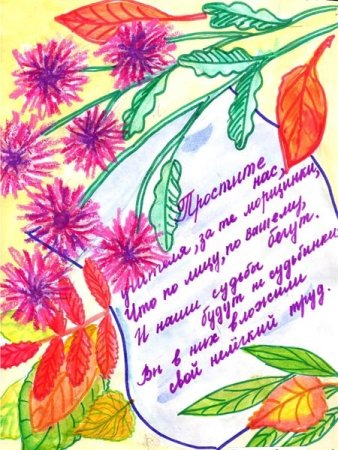 Простите нас,
учителя, за те морщинки,
Что по лицу, по вашему, бегут.
И наши судьбы
будут не судьбинки
Вы в них вложили
свой нелёгкий труд.